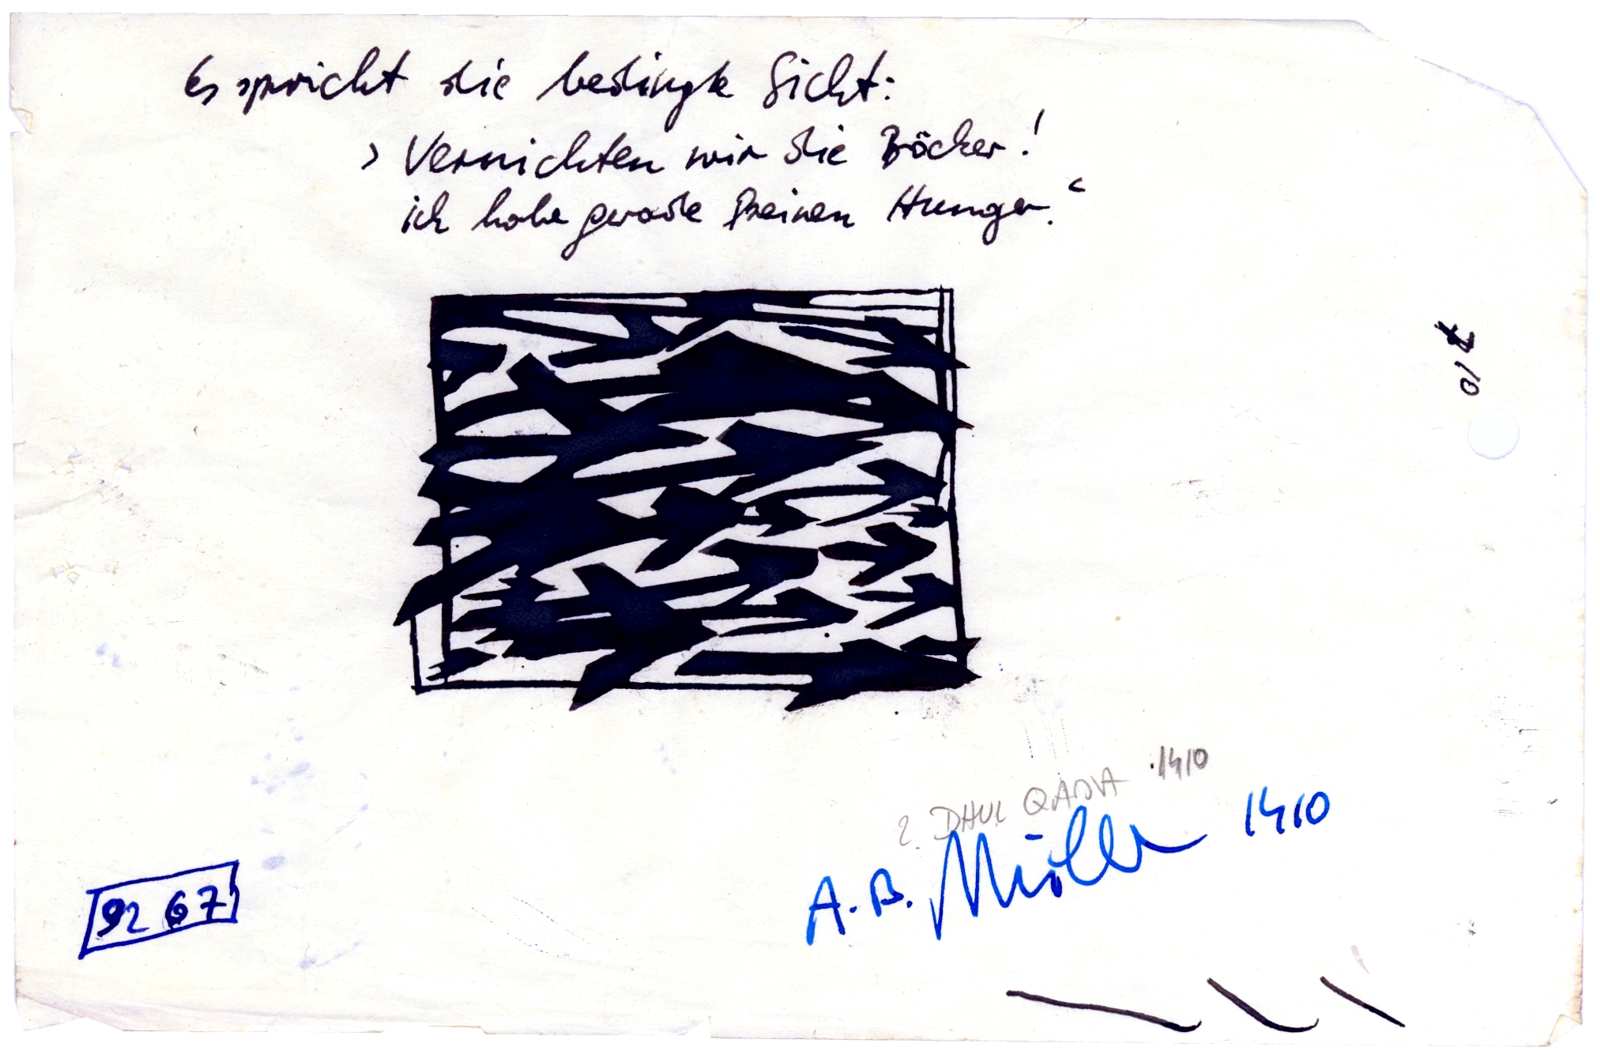 Es spricht die bedingte Sicht:
› Vernichten wir die Bäcker!
ich habe gerade keinen Hunger.‹
2. DHUL QADA 1410
A.B. Müller 1410
92 67